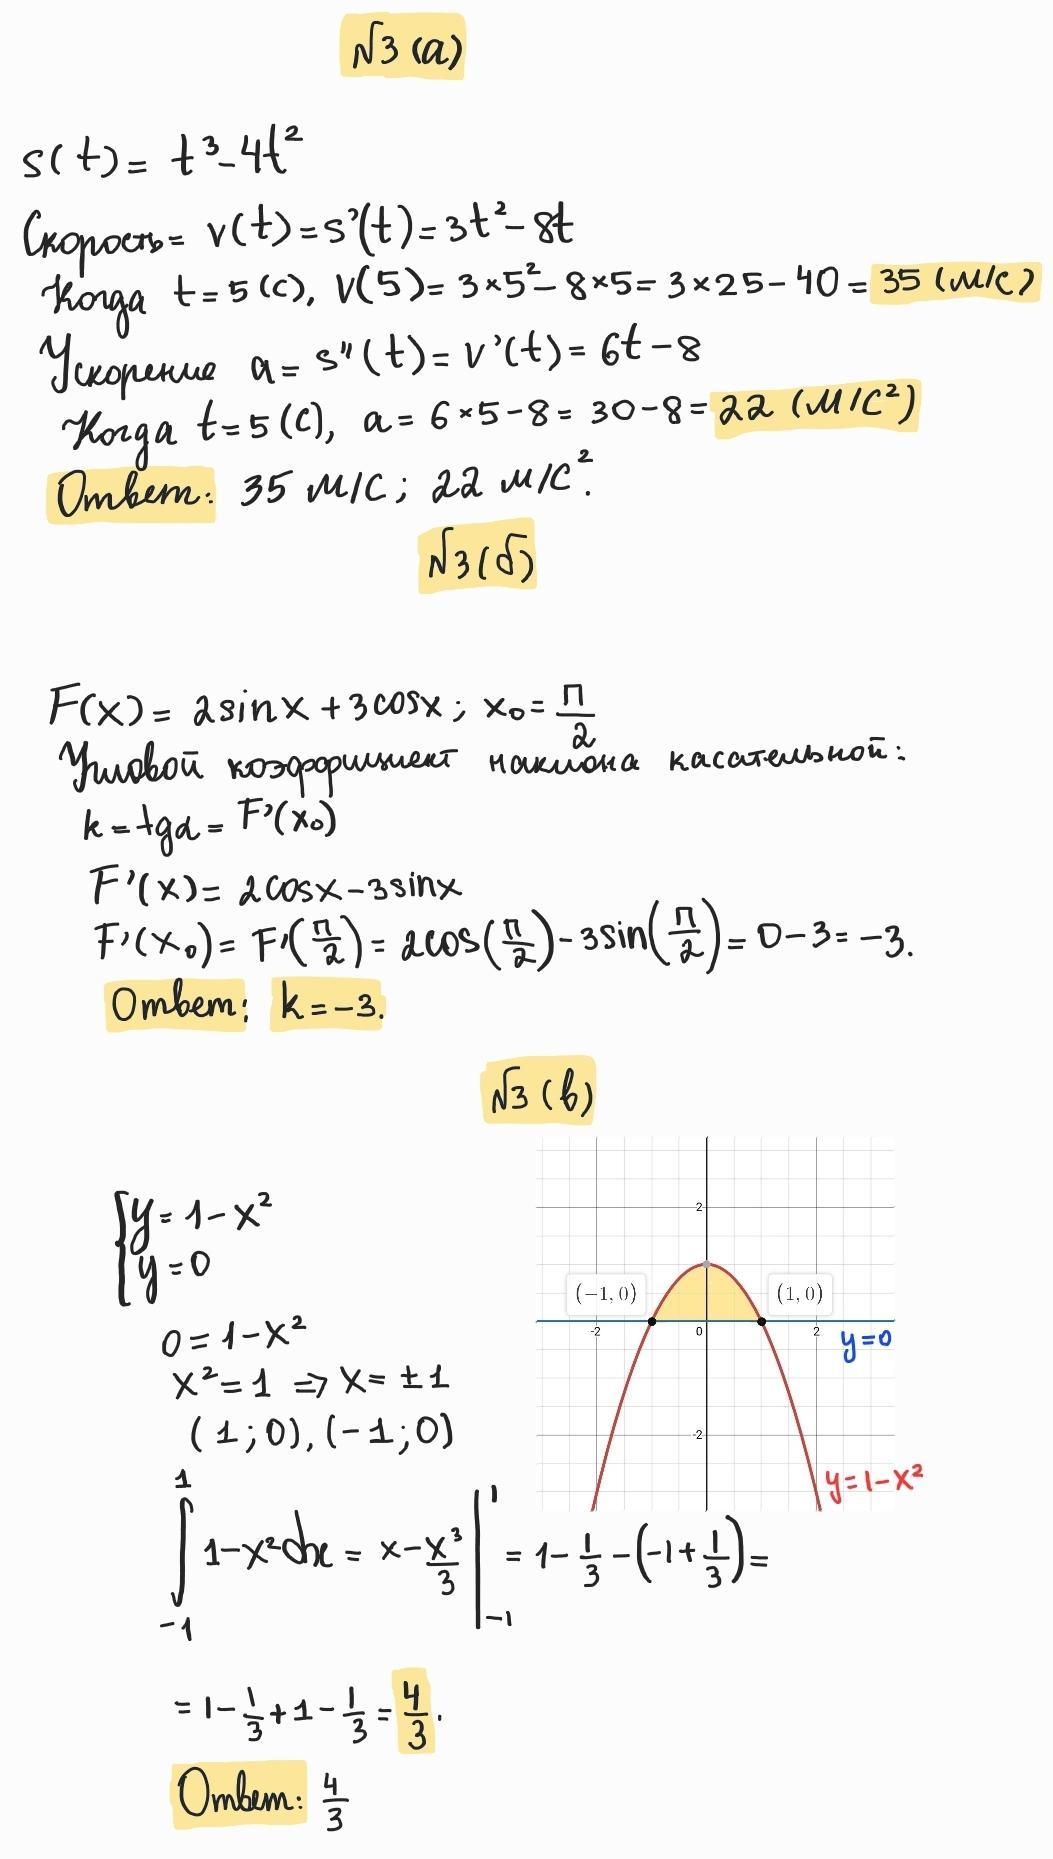 №3 (а)
s(t) = t³ - 4t²
Скорость = v(t) = s'(t) = 3t² - 8t
Когда t = 5 (с), v(5) = 3×5² - 8×5 = 3×25 - 40 = 35 (м/с)
Ускорение a = s''(t) = v'(t) = 6t - 8
Когда t = 5 (с), a = 6×5 - 8 = 30 - 8 = 22 (м/с²)
Ответ: 35 м/с; 22 м/с².
№3 (б)
F(x) = 2sinx + 3cosx; x₀ = π/2
Угловой коэффициент наклона касательной:
k = tgα = F'(x₀)
F'(x) = 2cosx - 3sinx
F'(x₀) = F'(π/2) = 2cos(π/2) - 3sin(π/2) = 0 - 3 = -3.
Ответ: k = -3.
№3 (в)
{y = 1 - x²
y = 0
0 = 1 - x²
x² = 1 ⇒ x = ±1
(1; 0), (-1; 0)
2
(−1, 0)
(1, 0)
-2
0
2
y = 0
-2
y = 1 - x²
∫₋₁¹ 1 - x² dx = x - x³/3 |₋₁¹ = 1 - 1/3 - (-1 + 1/3) =
= 1 - 1/3 + 1 - 1/3 = 4/3.
Ответ: 4/3